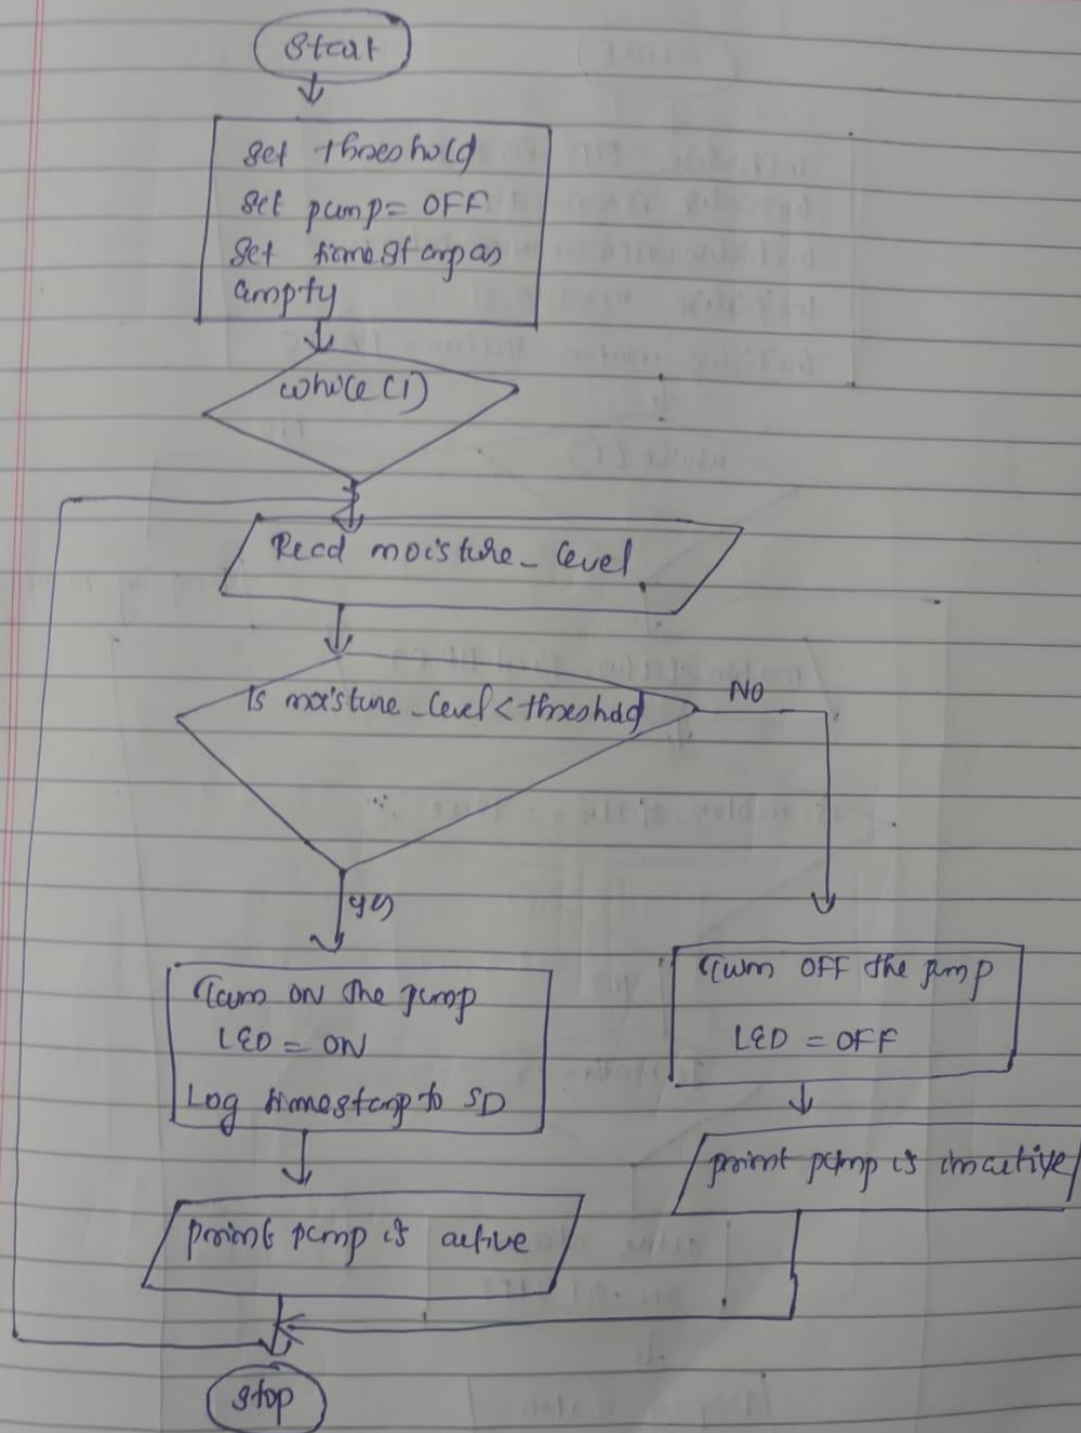 Start
set threshold
set pump = OFF
set timestamp as
empty
while (1)
Read moisture_level
Is moisture_level < threshold
NO
yes
Turn ON the pump
LED = ON
Log timestamp to SD
Turn OFF the pump
LED = OFF
print pump is inactive
print pump is active
stop